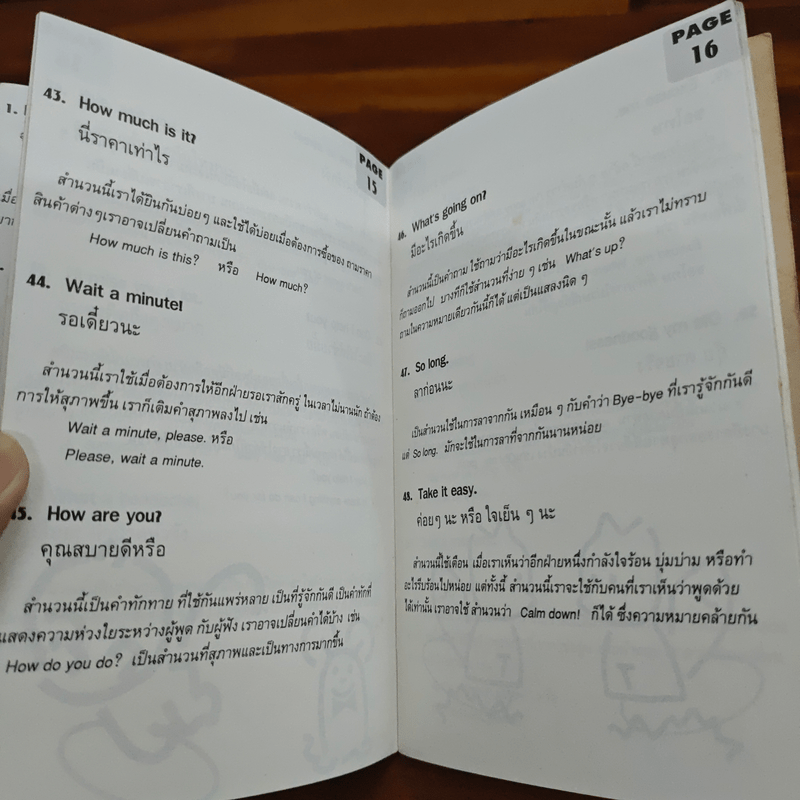 43. How much is it?
นี่ราคาเท่าไร
สำนวนนี้เราได้ยินกันบ่อยๆ และใช้ได้บ่อยเมื่อต้องการซื้อของ ถามราคา
สินค้าต่างๆเราอาจเปลี่ยนคำถามเป็น
How much is this? หรือ How much?
44. Wait a minute!
รอเดี๋ยวนะ
สำนวนนี้เราใช้เมื่อต้องการให้อีกฝ่ายรอเราสักครู่ ในเวลาไม่นานนัก ถ้าต้อง
การให้สุภาพขึ้น เราก็เติมคำสุภาพลงไป เช่น
Wait a minute, please. หรือ
Please, wait a minute.
45. How are you?
คุณสบายดีหรือ
สำนวนนี้เป็นคำทักทาย ที่ใช้กันแพร่หลาย เป็นที่รู้จักกันดี เป็นคำทักที่
แสดงความห่วงใยระหว่างผู้พูด กับผู้ฟัง เราอาจเปลี่ยนคำได้บ้าง เช่น
How do you do? เป็นสำนวนที่สุภาพและเป็นทางการมากขึ้น
PAGE
15
PAGE
16
46. What's going on?
มีอะไรเกิดขึ้น
สำนวนนี้เป็นคำถาม ใช้ถามว่ามีอะไรเกิดขึ้นในขณะนั้น แล้วเราไม่ทราบ
ก็ถามออกไป บางทีก็ใช้สำนวนที่ง่าย ๆ เช่น What's up?
ถามในความหมายเดียวกันนี้ก็ได้ แต่เป็นแสลงนิด ๆ
47. So long.
ลาก่อนนะ
เป็นสำนวนใช้ในการลาจากกัน เหมือน ๆ กับคำว่า Bye-bye ที่เรารู้จักกันดี
แต่ So long. มักจะใช้ในการลาที่จากกันนานหน่อย
48. Take it easy.
ค่อยๆ นะ หรือ ใจเย็น ๆ นะ
สำนวนนี้ใช้เตือน เมื่อเราเห็นว่าอีกฝ่ายหนึ่งกำลังใจร้อน บุ่มบ่าม หรือทำ
อะไรรีบร้อนไปหน่อย แต่ทั้งนี้ สำนวนนี้เราจะใช้กับคนที่เราเห็นว่าพูดด้วย
ได้เท่านั้น เราอาจใช้ สำนวนว่า Calm down! ก็ได้ ซึ่งความหมายคล้ายกัน